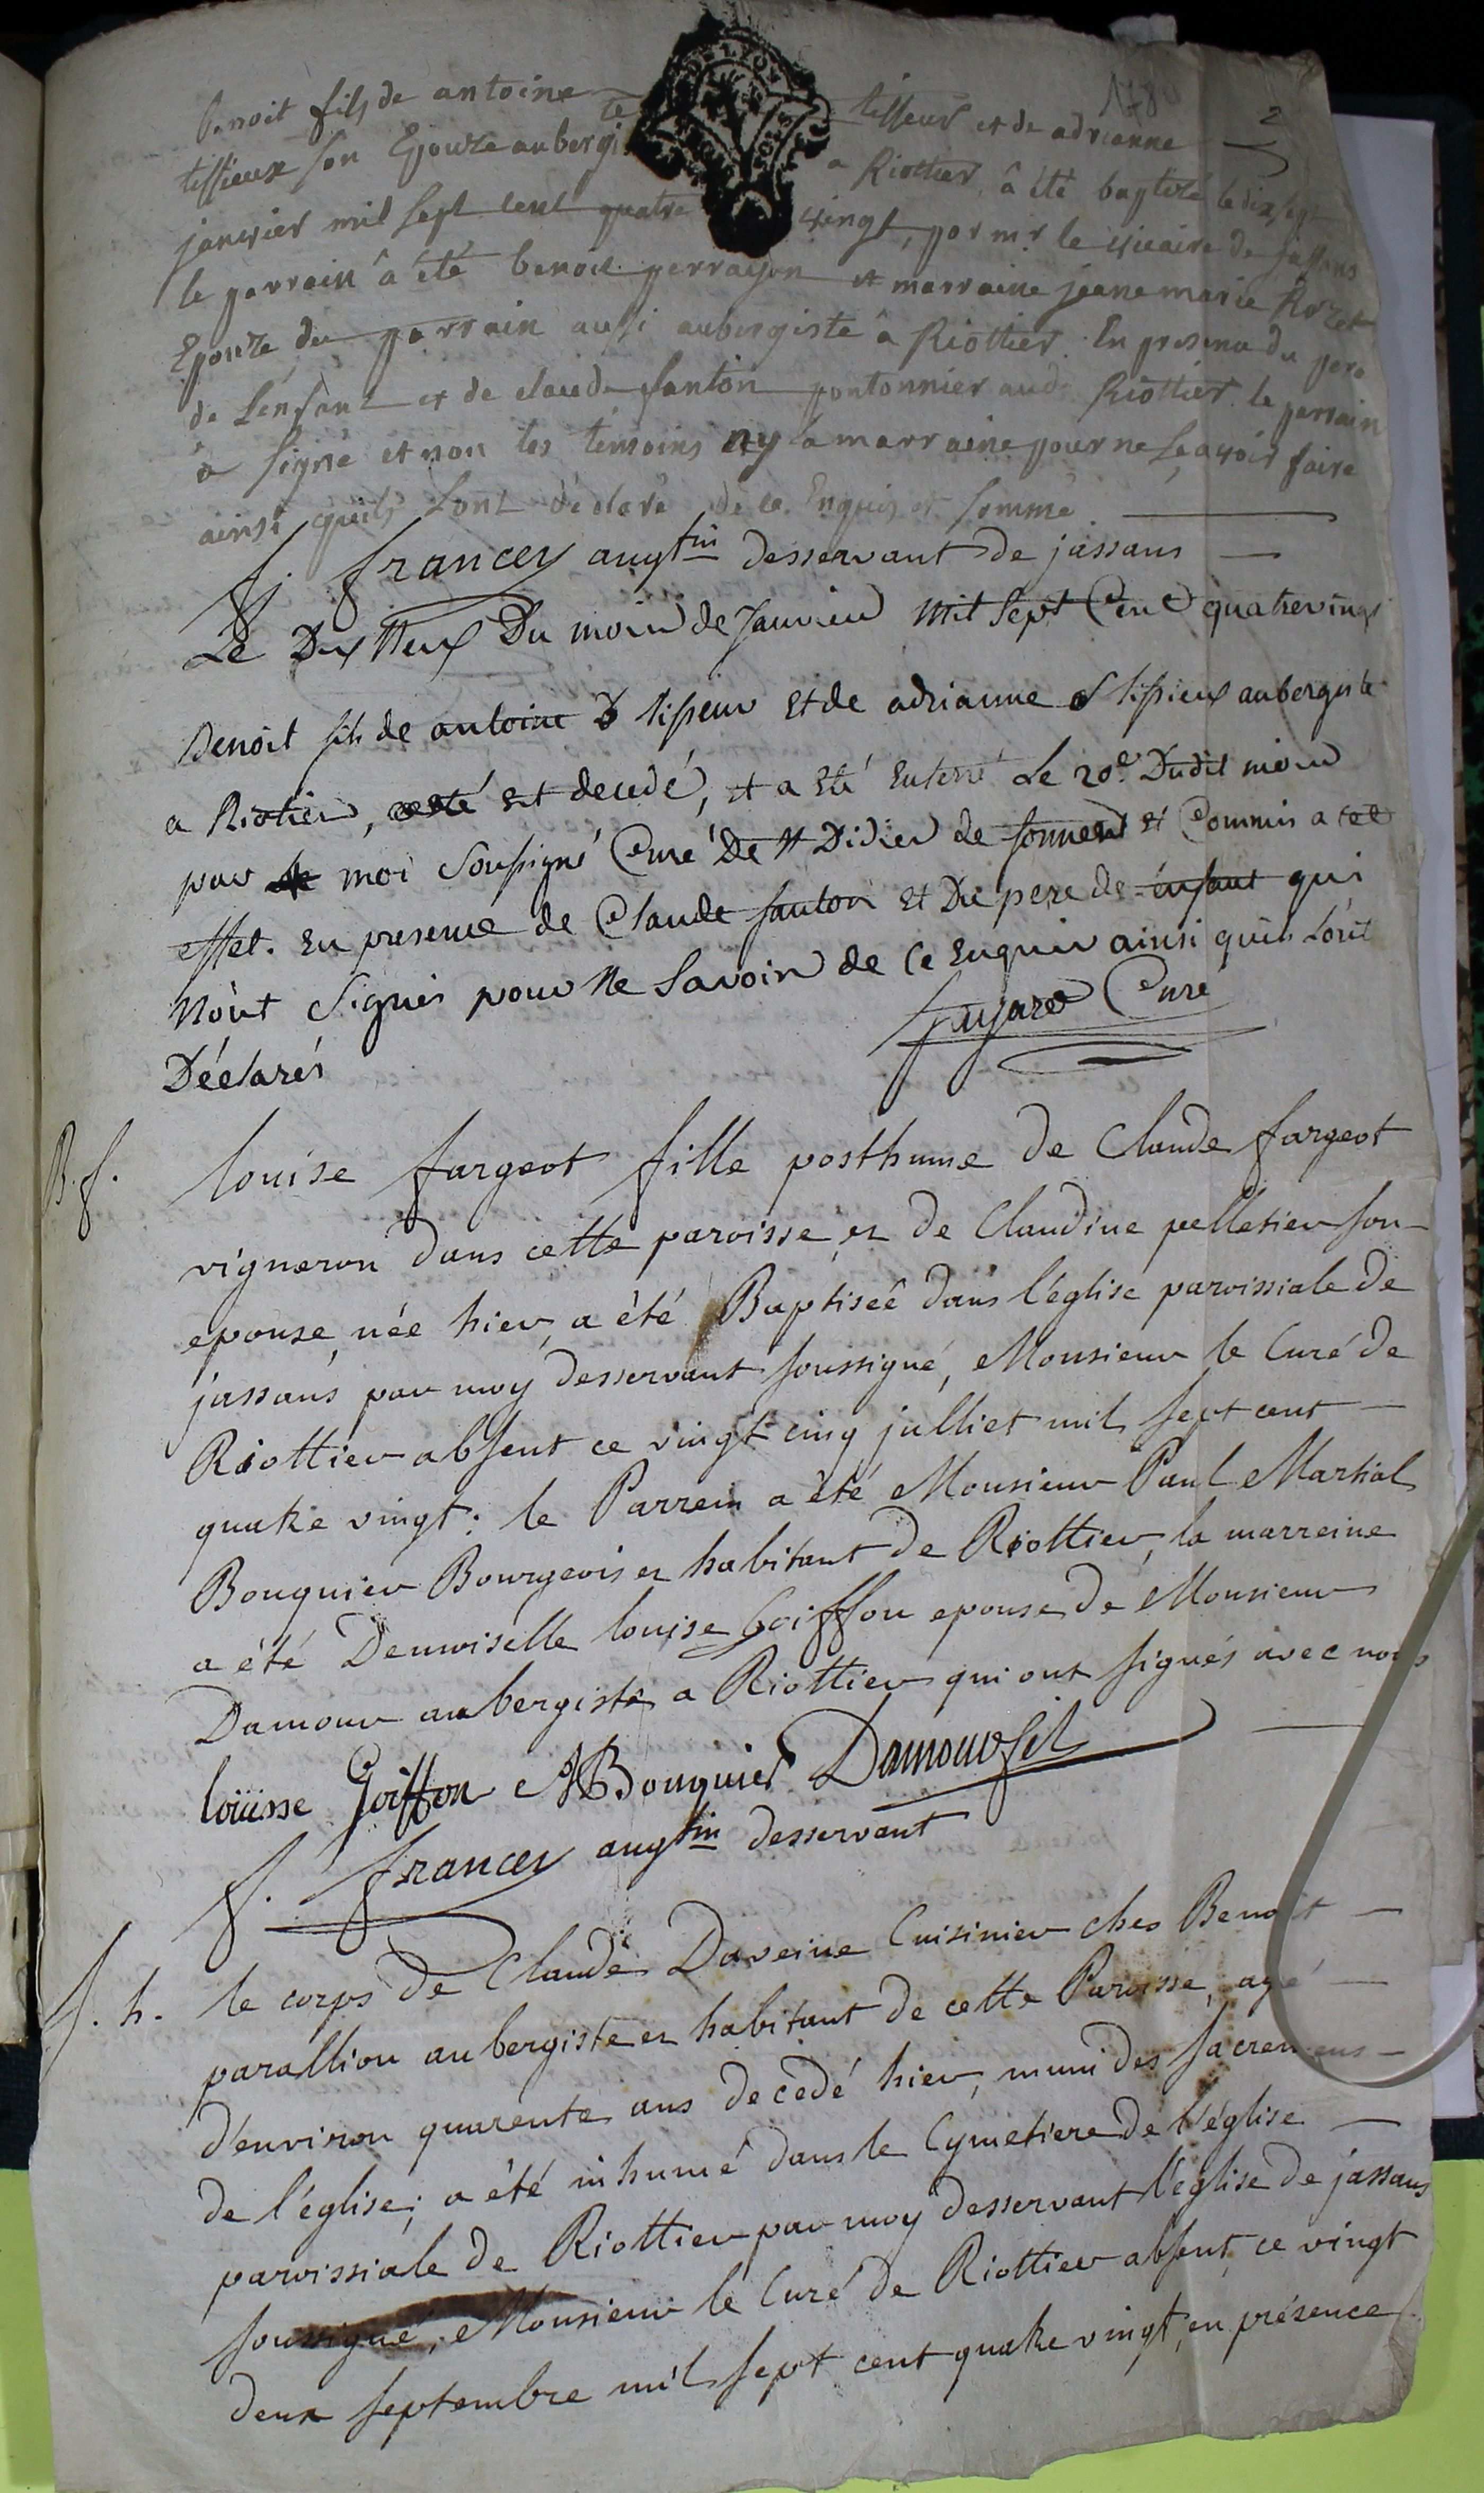 1780
2
benoit fils de antoine tisseur et de adrianne
tissieux son Epouze aubergiste a Riottier, à été baptizé le dix sept
janvier mil sept cent quatre vingt, par mr le vicaire de jassans
le parrain à été benoit perrayon et marraine jeane marie Rozet
Epouze du parrain aussi aubergiste à Riottier. En presence du pere
de L'enfant et de claude fanton pontonnier aud. Riottier. le parrain
à signé et non les témoins ny la marraine pour ne sçavoir faire
ainsi quils L'ont déclaré de ce Enquis et sommé.
f. francey augtin desservant de jassans
Le Dix Neuf Du mois de Janvier Mil Sept Cent quatrevingt
Benoit fils de antoine tisseur et de adrianne tissieux aubergiste
a Riotier, est decedé, et a eté enterré Le 20e Dudit mois
par moi Soussigné Curé De St Didier de formans et Commis a cet
effet. En presence de Claude fanton et Du pere de enfant qui
N'ont Signés pour Ne Savoir de Ce Enquis ainsi quils L'ont
Déclarés
Curé
B. f.
louise fargeot fille posthume de Claude fargeot
vigneron dans cette paroisse et de Claudine pelletier son
epouse, née hier, a été Baptisée dans l'église paroissiale de
jassans par moy desservant soussigné, Monsieur le Curé de
Riottier absent ce vingt cinq julliet mil sept cent
quatre vingt : le Parrein a été Monsieur Paul Martial
Bouquier Bourgeois et habitant de Riottier, la marreine
a été Demoiselle louise Goiffon epouse de Monsieur
Damour aubergiste a Riottier qui ont signés avec nous
louisse Goiffon Bouquier Damour fils
f. francey augtin desservant
f. h.
le corps de Claude Daveine Cuisinier ches Benoit
parallion aubergiste et habitant de cette Paroisse, agé
d'environ quarente ans decedé hier, muni des sacremens
de l'église ; a été inhumé dans le Cymetiere de l'église
paroissiale de Riottier par moy desservant l'église de jassans
soussigné, Monsieur le Curé de Riottier absent, ce vingt
deux septembre mil sept cent quatre vingt, en présence